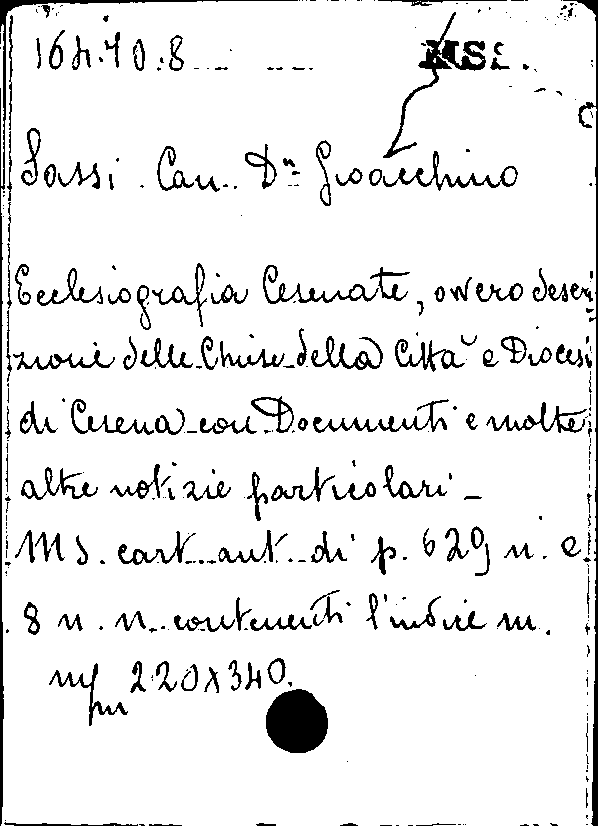 164.70.8 MSS.
Sassi Can. Dn Gioacchino
Ecclesiografia Cesenate, ovvero descri
zione delle Chiese della Città e Diocesi
di Cesena con Documenti e molte
altre notizie particolari -
MS. cart. aut. di p. 629 n. e
8 n. n. contenenti l'indice m.
220x340.